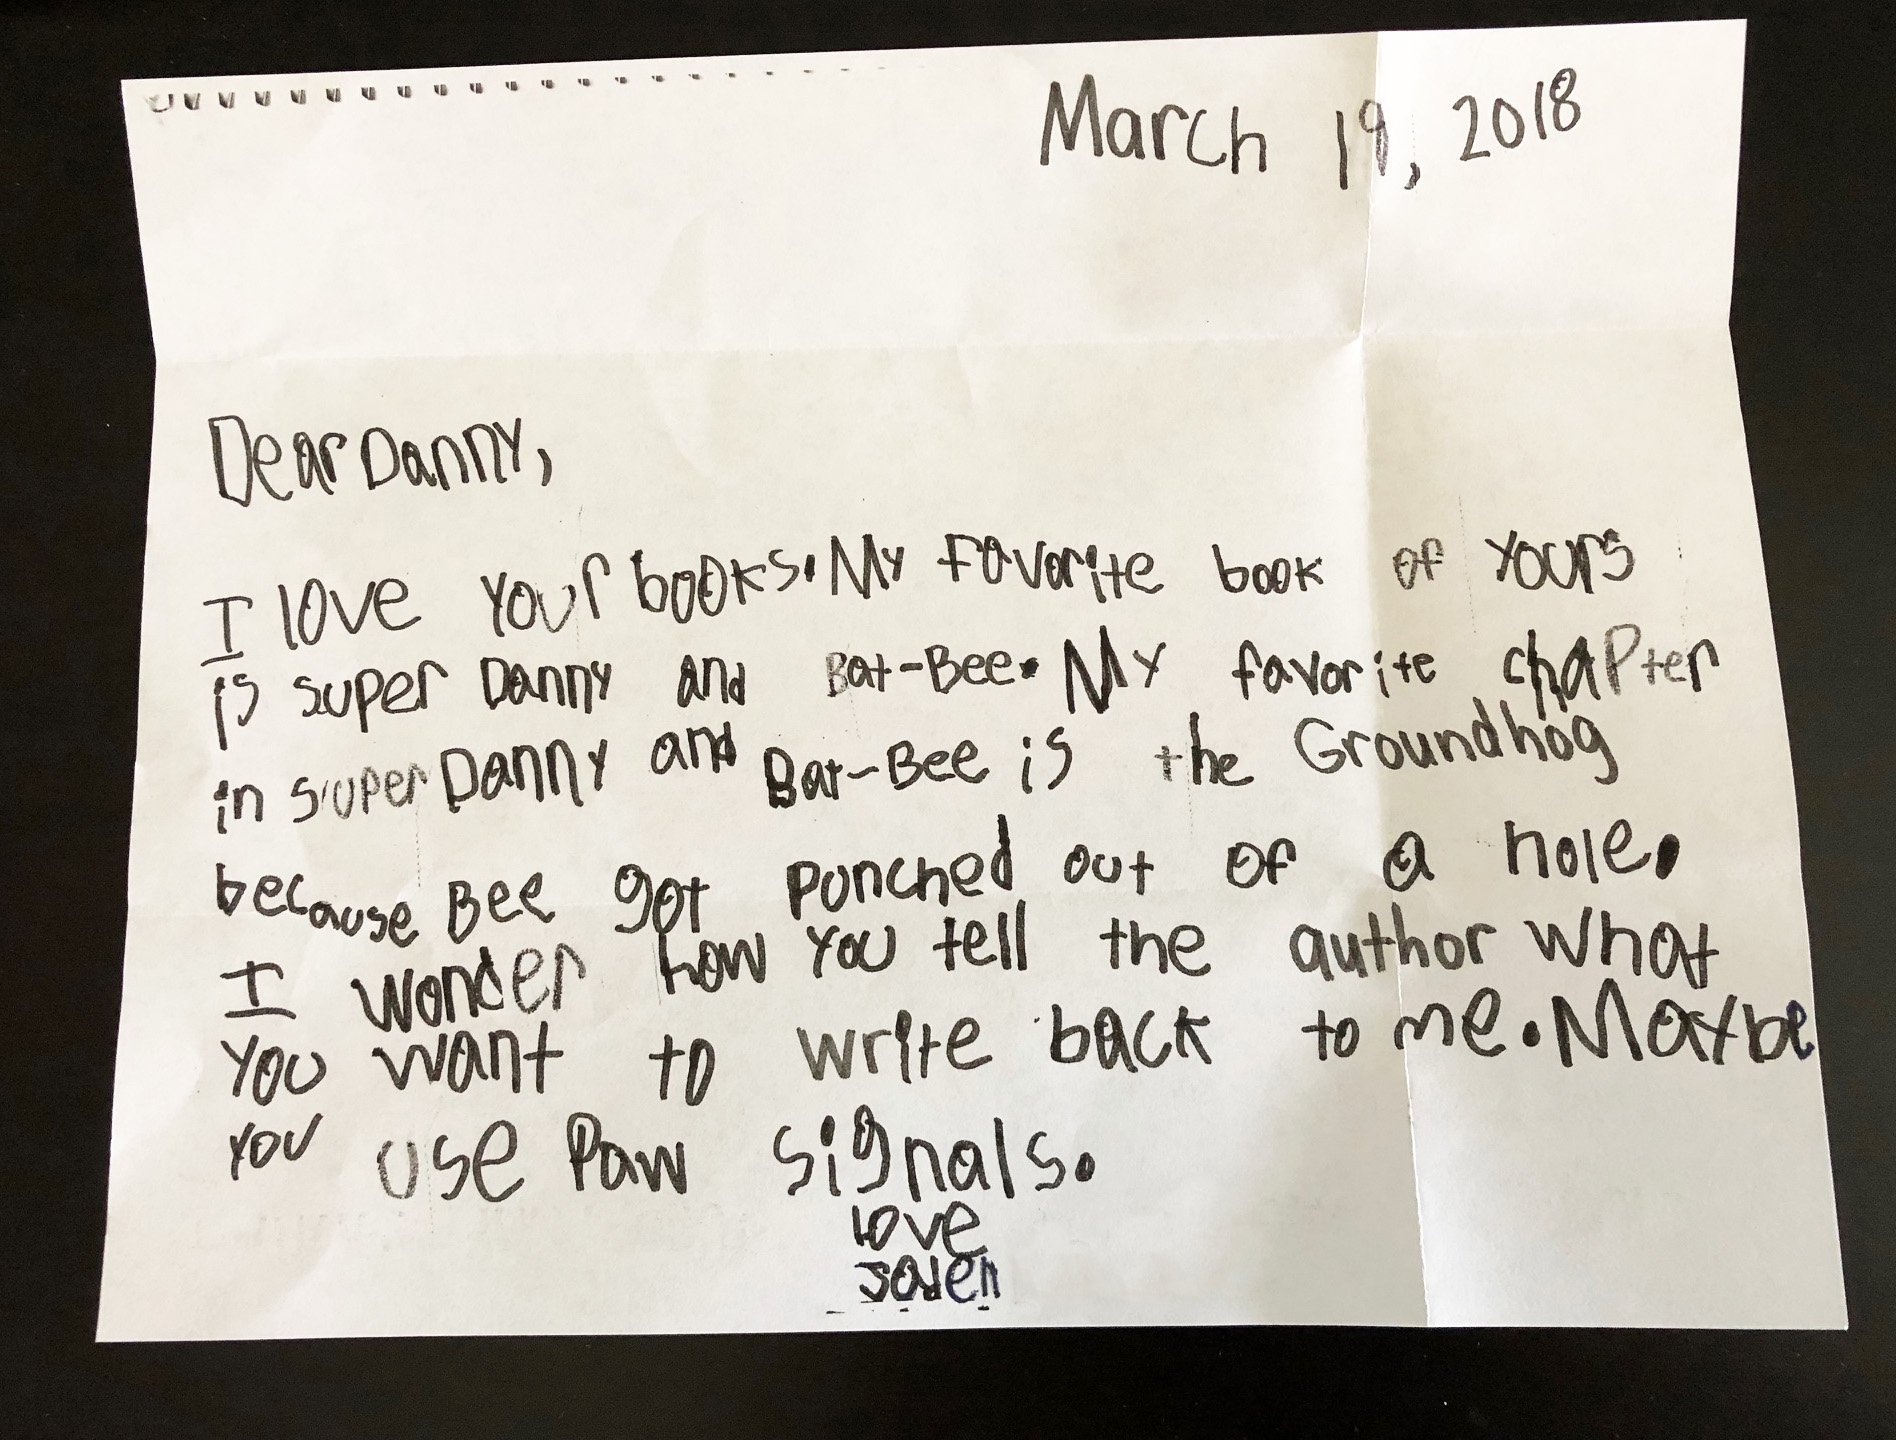 March 19, 2018
Dear Danny,
I love your books. My favorite book of yours
is super Danny and Bat-Bee. My favorite chapter
in super Danny and Bat-Bee is the Groundhog
because Bee got punched out of a hole.
I wonder how you tell the author what
you want to write back to me. Maybe
you use Paw signals.
love
Jaden